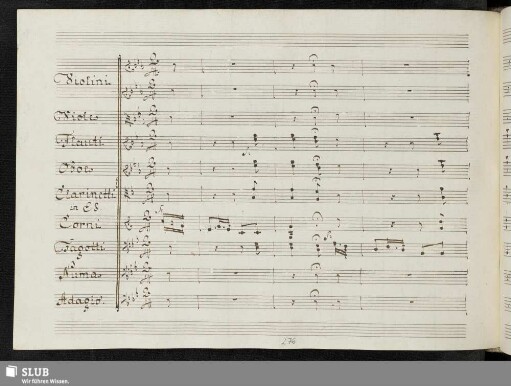 Violini
Viole
Flauti
Oboe
Clarinetti
in E♭
Corni
Fagotti
Numa
Adagio.
276
SLUB
Wir führen Wissen.